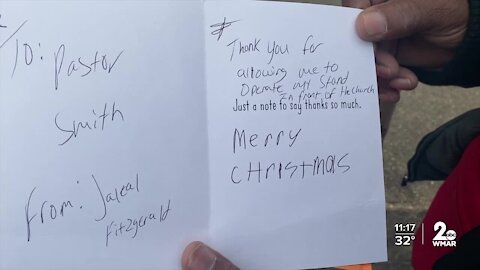 To:
Pastor
Smith
From: Jaleal
Fitzgerald
Thank you for
allowing me to
Operate my Stand
In front of the church
Just a note to say thanks so much.
Merry
CHristmas
11:17
32°
2 abc
WMAR